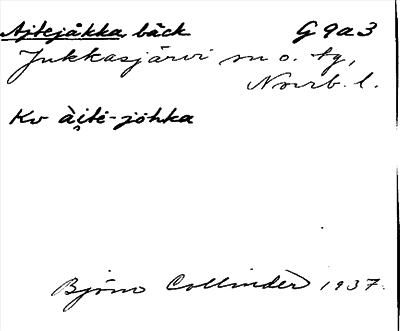 Ajtejåkka bäck G 9a3
Jukkasjärvi sn o. tg,
Norrb. l.
Kv ài̯tē-jòhka
Björn Collinder 1937.